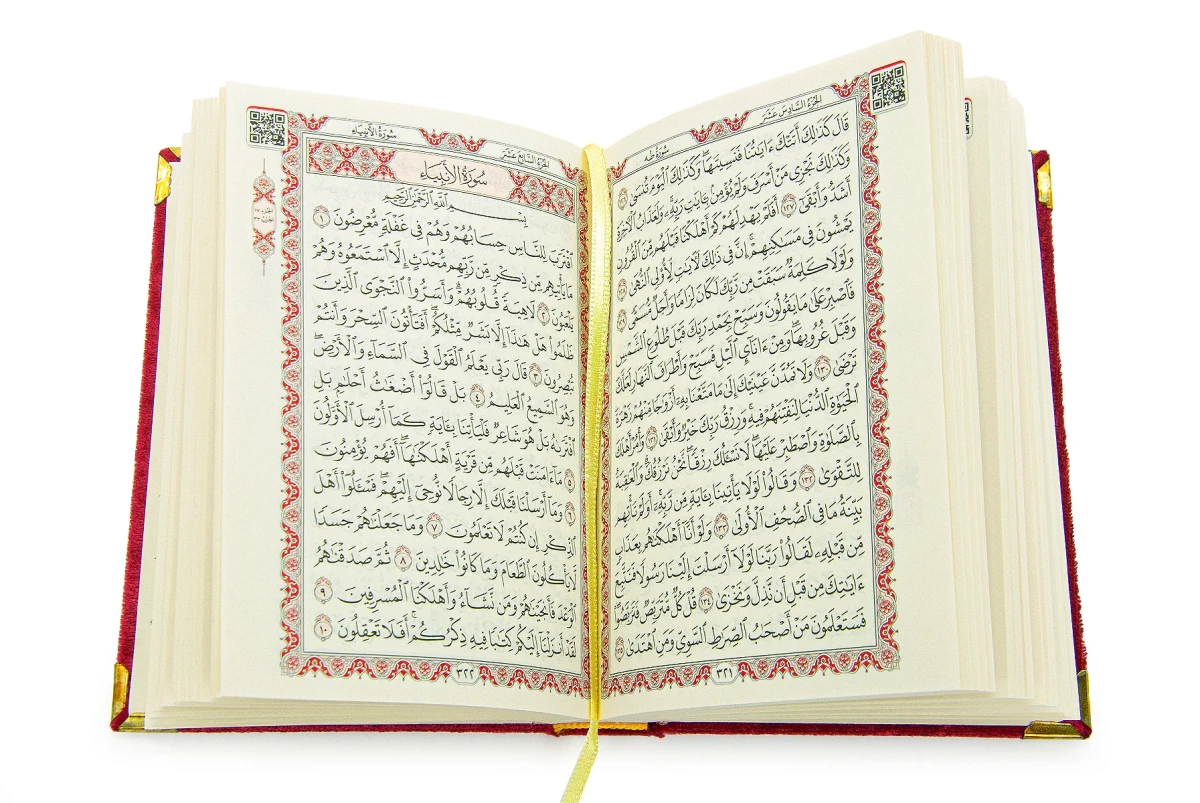 الجزء السادس عشر
سورة طه
قَالَ كَذَٰلِكَ أَتَتْكَ ءَايَٰتُنَا فَنَسِيتَهَا ۖ وَكَذَٰلِكَ ٱلْيَوْمَ تُنسَىٰ ١٢٦
وَكَذَٰلِكَ نَجْزِى مَنْ أَسْرَفَ وَلَمْ يُؤْمِنۢ بِـَٔايَٰتِ رَبِّهِۦ ۚ وَلَعَذَابُ ٱلْءَاخِرَةِ
أَشَدُّ وَأَبْقَىٰٓ ١٢٧ أَفَلَمْ يَهْدِ لَهُمْ كَمْ أَهْلَكْنَا قَبْلَهُم مِّنَ ٱلْقُرُونِ
يَمْشُونَ فِى مَسَٰكِنِهِمْ ۗ إِنَّ فِى ذَٰلِكَ لَءَايَٰتٍ لِّأُو۟لِى ٱلنُّهَىٰ ١٢٨
وَلَوْلَا كَلِمَةٌ سَبَقَتْ مِن رَّبِّكَ لَكَانَ لِزَامًا وَأَجَلٌ مُّسَمًّى ١٢٩
فَٱصْبِرْ عَلَىٰ مَا يَقُولُونَ وَسَبِّحْ بِحَمْدِ رَبِّكَ قَبْلَ طُلُوعِ ٱلشَّمْسِ
وَقَبْلَ غُرُوبِهَا ۖ وَمِنْ ءَانَآئِ ٱلَّيْلِ فَسَبِّحْ وَأَطْرَافَ ٱلنَّهَارِ لَعَلَّكَ
تَرْضَىٰ ١٣٠ وَلَا تَمُدَّنَّ عَيْنَيْكَ إِلَىٰ مَا مَتَّعْنَا بِهِۦٓ أَزْوَٰجًا مِّنْهُمْ زَهْرَةَ
ٱلْحَيَوٰةِ ٱلدُّنْيَا لِنَفْتِنَهُمْ فِيهِ ۚ وَرِزْقُ رَبِّكَ خَيْرٌ وَأَبْقَىٰ ١٣١ وَأْمُرْ أَهْلَكَ
بِٱلصَّلَوٰةِ وَٱصْطَبِرْ عَلَيْهَا ۖ لَا نَسْـَٔلُكَ رِزْقًا ۖ نَّحْنُ نَرْزُقُكَ ۗ وَٱلْعَٰقِبَةُ
لِلتَّقْوَىٰ ١٣٢ وَقَالُوا۟ لَوْلَا يَأْتِينَا بِـَٔايَةٍ مِّن رَّبِّهِۦٓ ۚ أَوَلَمْ تَأْتِهِم
بَيِّنَةُ مَا فِى ٱلصُّحُفِ ٱلْأُولَىٰ ١٣٣ وَلَوْ أَنَّآ أَهْلَكْنَٰهُم بِعَذَابٍ
مِّن قَبْلِهِۦ لَقَالُوا۟ رَبَّنَا لَوْلَآ أَرْسَلْتَ إِلَيْنَا رَسُولًا فَنَتَّبِعَ
ءَايَٰتِكَ مِن قَبْلِ أَن نَّذِلَّ وَنَخْزَىٰ ١٣٤ قُلْ كُلٌّ مُّتَرَبِّصٌ فَتَرَبَّصُوا۟ ۖ
فَسَتَعْلَمُونَ مَنْ أَصْحَٰبُ ٱلصِّرَٰطِ ٱلسَّوِىِّ وَمَنِ ٱهْتَدَىٰ ١٣٥
٣٢١
الجزء السابع عشر
سورة الأنبياء
سُورَةُ الأَنبِيَاءِ
بِسْمِ ٱللَّهِ ٱلرَّحْمَٰنِ ٱلرَّحِيمِ
ٱقْتَرَبَ لِلنَّاسِ حِسَابُهُمْ وَهُمْ فِى غَفْلَةٍ مُّعْرِضُونَ ١
مَا يَأْتِيهِم مِّن ذِكْرٍ مِّن رَّبِّهِم مُّحْدَثٍ إِلَّا ٱسْتَمَعُوهُ وَهُمْ
يَلْعَبُونَ ٢ لَاهِيَةً قُلُوبُهُمْ ۗ وَأَسَرُّوا۟ ٱلنَّجْوَى ٱلَّذِينَ
ظَلَمُوا۟ هَلْ هَٰذَآ إِلَّا بَشَرٌ مِّثْلُكُمْ ۖ أَفَتَأْتُونَ ٱلسِّحْرَ وَأَنتُمْ
تُبْصِرُونَ ٣ قَالَ رَبِّى يَعْلَمُ ٱلْقَوْلَ فِى ٱلسَّمَآءِ وَٱلْأَرْضِ ۖ
وَهُوَ ٱلسَّمِيعُ ٱلْعَلِيمُ ٤ بَلْ قَالُوٓا۟ أَضْغَٰثُ أَحْلَٰمٍۭ بَلِ
ٱفْتَرَىٰهُ بَلْ هُوَ شَاعِرٌ فَلْيَأْتِنَا بِـَٔايَةٍ كَمَآ أُرْسِلَ ٱلْأَوَّلُونَ
٥ مَآ ءَامَنَتْ قَبْلَهُم مِّن قَرْيَةٍ أَهْلَكْنَٰهَآ ۖ أَفَهُمْ يُؤْمِنُونَ
٦ وَمَآ أَرْسَلْنَا قَبْلَكَ إِلَّا رِجَالًا نُّوحِىٓ إِلَيْهِمْ ۖ فَسْـَٔلُوٓا۟ أَهْلَ
ٱلذِّكْرِ إِن كُنتُمْ لَا تَعْلَمُونَ ٧ وَمَا جَعَلْنَٰهُمْ جَسَدًا
لَّا يَأْكُلُونَ ٱلطَّعَامَ وَمَا كَانُوا۟ خَٰلِدِينَ ٨ ثُمَّ صَدَقْنَٰهُمُ
ٱلْوَعْدَ فَأَنجَيْنَٰهُمْ وَمَن نَّشَآءُ وَأَهْلَكْنَا ٱلْمُسْرِفِينَ ٩
لَقَدْ أَنزَلْنَآ إِلَيْكُمْ كِتَٰبًا فِيهِ ذِكْرُكُمْ ۖ أَفَلَا تَعْقِلُونَ ١٠
٣٢٢